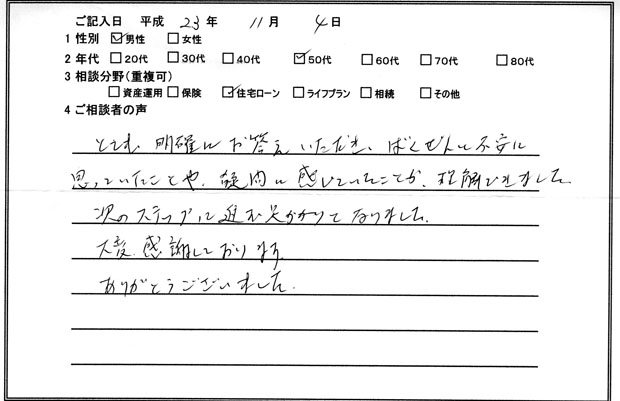 ご記入日 平成 23 年 11 月 4 日
1 性別 ☑男性 □女性
2 年代 □20代 □30代 □40代 ☑50代 □60代 □70代 □80代
3 相談分野(重複可)
□資産運用 □保険 ☑住宅ローン □ライフプラン □相続 □その他
4 ご相談者の声
とても 明確に お答え いただき、ばくぜんと不安に
思っていたことや、疑問に感じていたことが、理解できました。
次のステップに進む足がかりと なりました。
大変、感謝しております。
ありがとうございました。